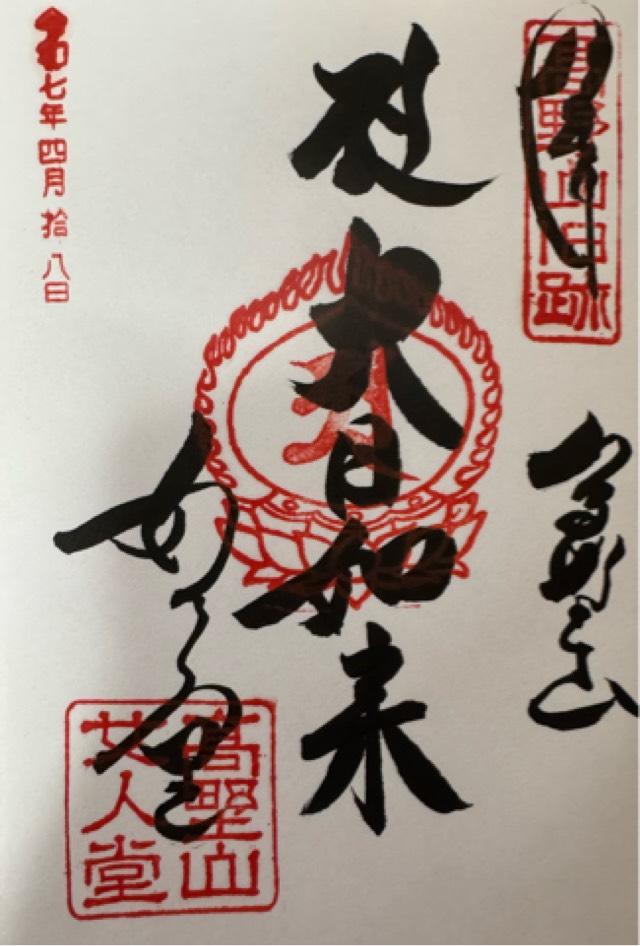 奉拝
高野山旧跡
高野山
大日如来
女人堂
高野山
女人堂
令和七年四月拾八日